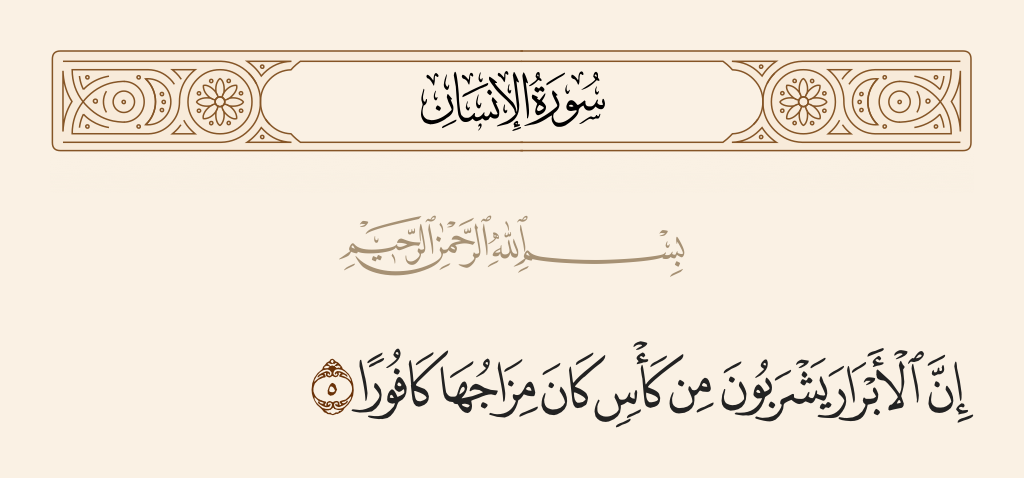 سُورَةُ الإِنسَانِ
بِسْمِ ٱللَّهِ ٱلرَّحْمَٰنِ ٱلرَّحِيمِ
إِنَّ ٱلْأَبْرَارَ يَشْرَبُونَ مِن كَأْسٍ كَانَ مِزَاجُهَا كَافُورًا ٥